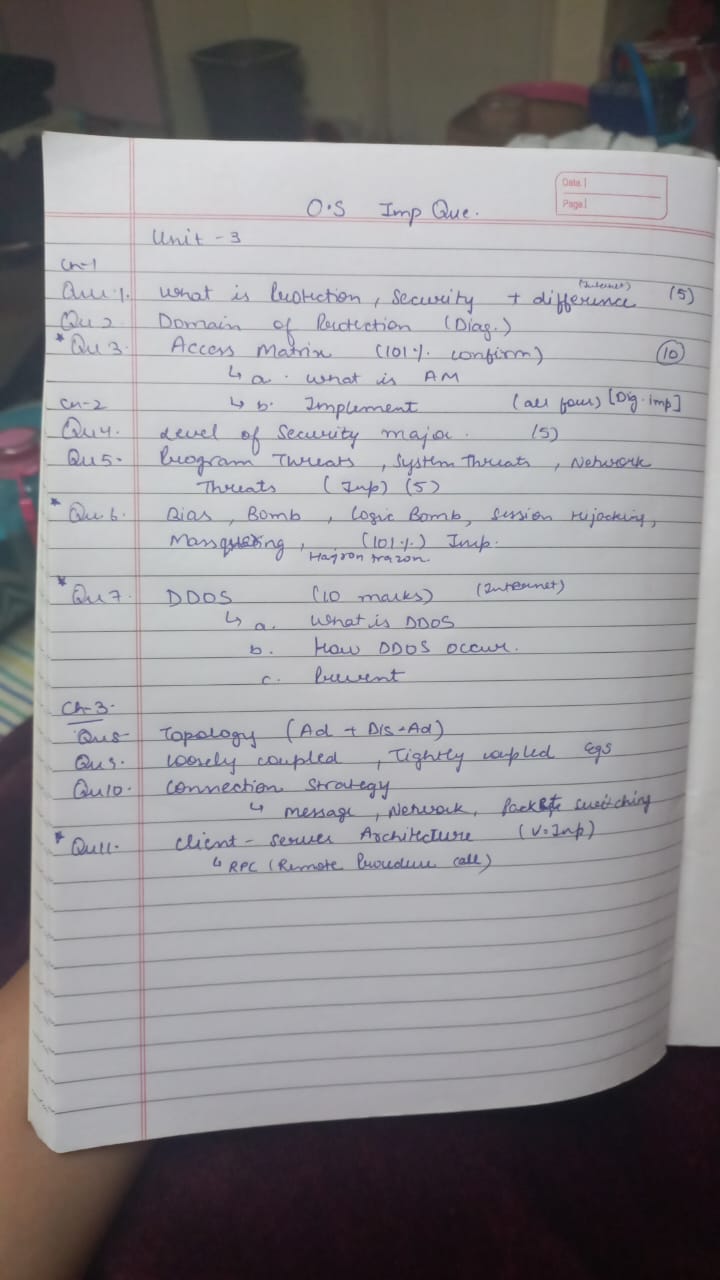 Date
Page
O.S Imp Que.
Unit - 3
Ch-1
Que 1. What is Protection, Security + difference (Internet) (5)
Qu 2 Domain of Protection (Diag.)
* Qu 3. Access Matrix (101% confirm) (10)
↳ a. what is AM
Ch-2 ↳ b. Implement (all four) [Dig. imp]
Qu 4. Level of Security major. (5)
Qu 5. Program Threats, System Threats, Network
Threats (Imp) (5)
* Qu 6. Bomb, Logic Bomb, Session Hijacking,
(101%) Imp.
* Qu 7. DDOS (10 marks) (Internet)
↳ a. What is DDOS
b. How DDOS occur.
c. Prevent
Ch-3.
Qu 8 Topology (Ad + Dis-Ad)
Qu 9. Loosely coupled, Tightly coupled egs
Qu 10. Connection Strategy
↳ Message, Network, Packet switching
* Qu 11. Client - Server Architecture (V. Imp)
↳ RPC (Remote Procedure call)